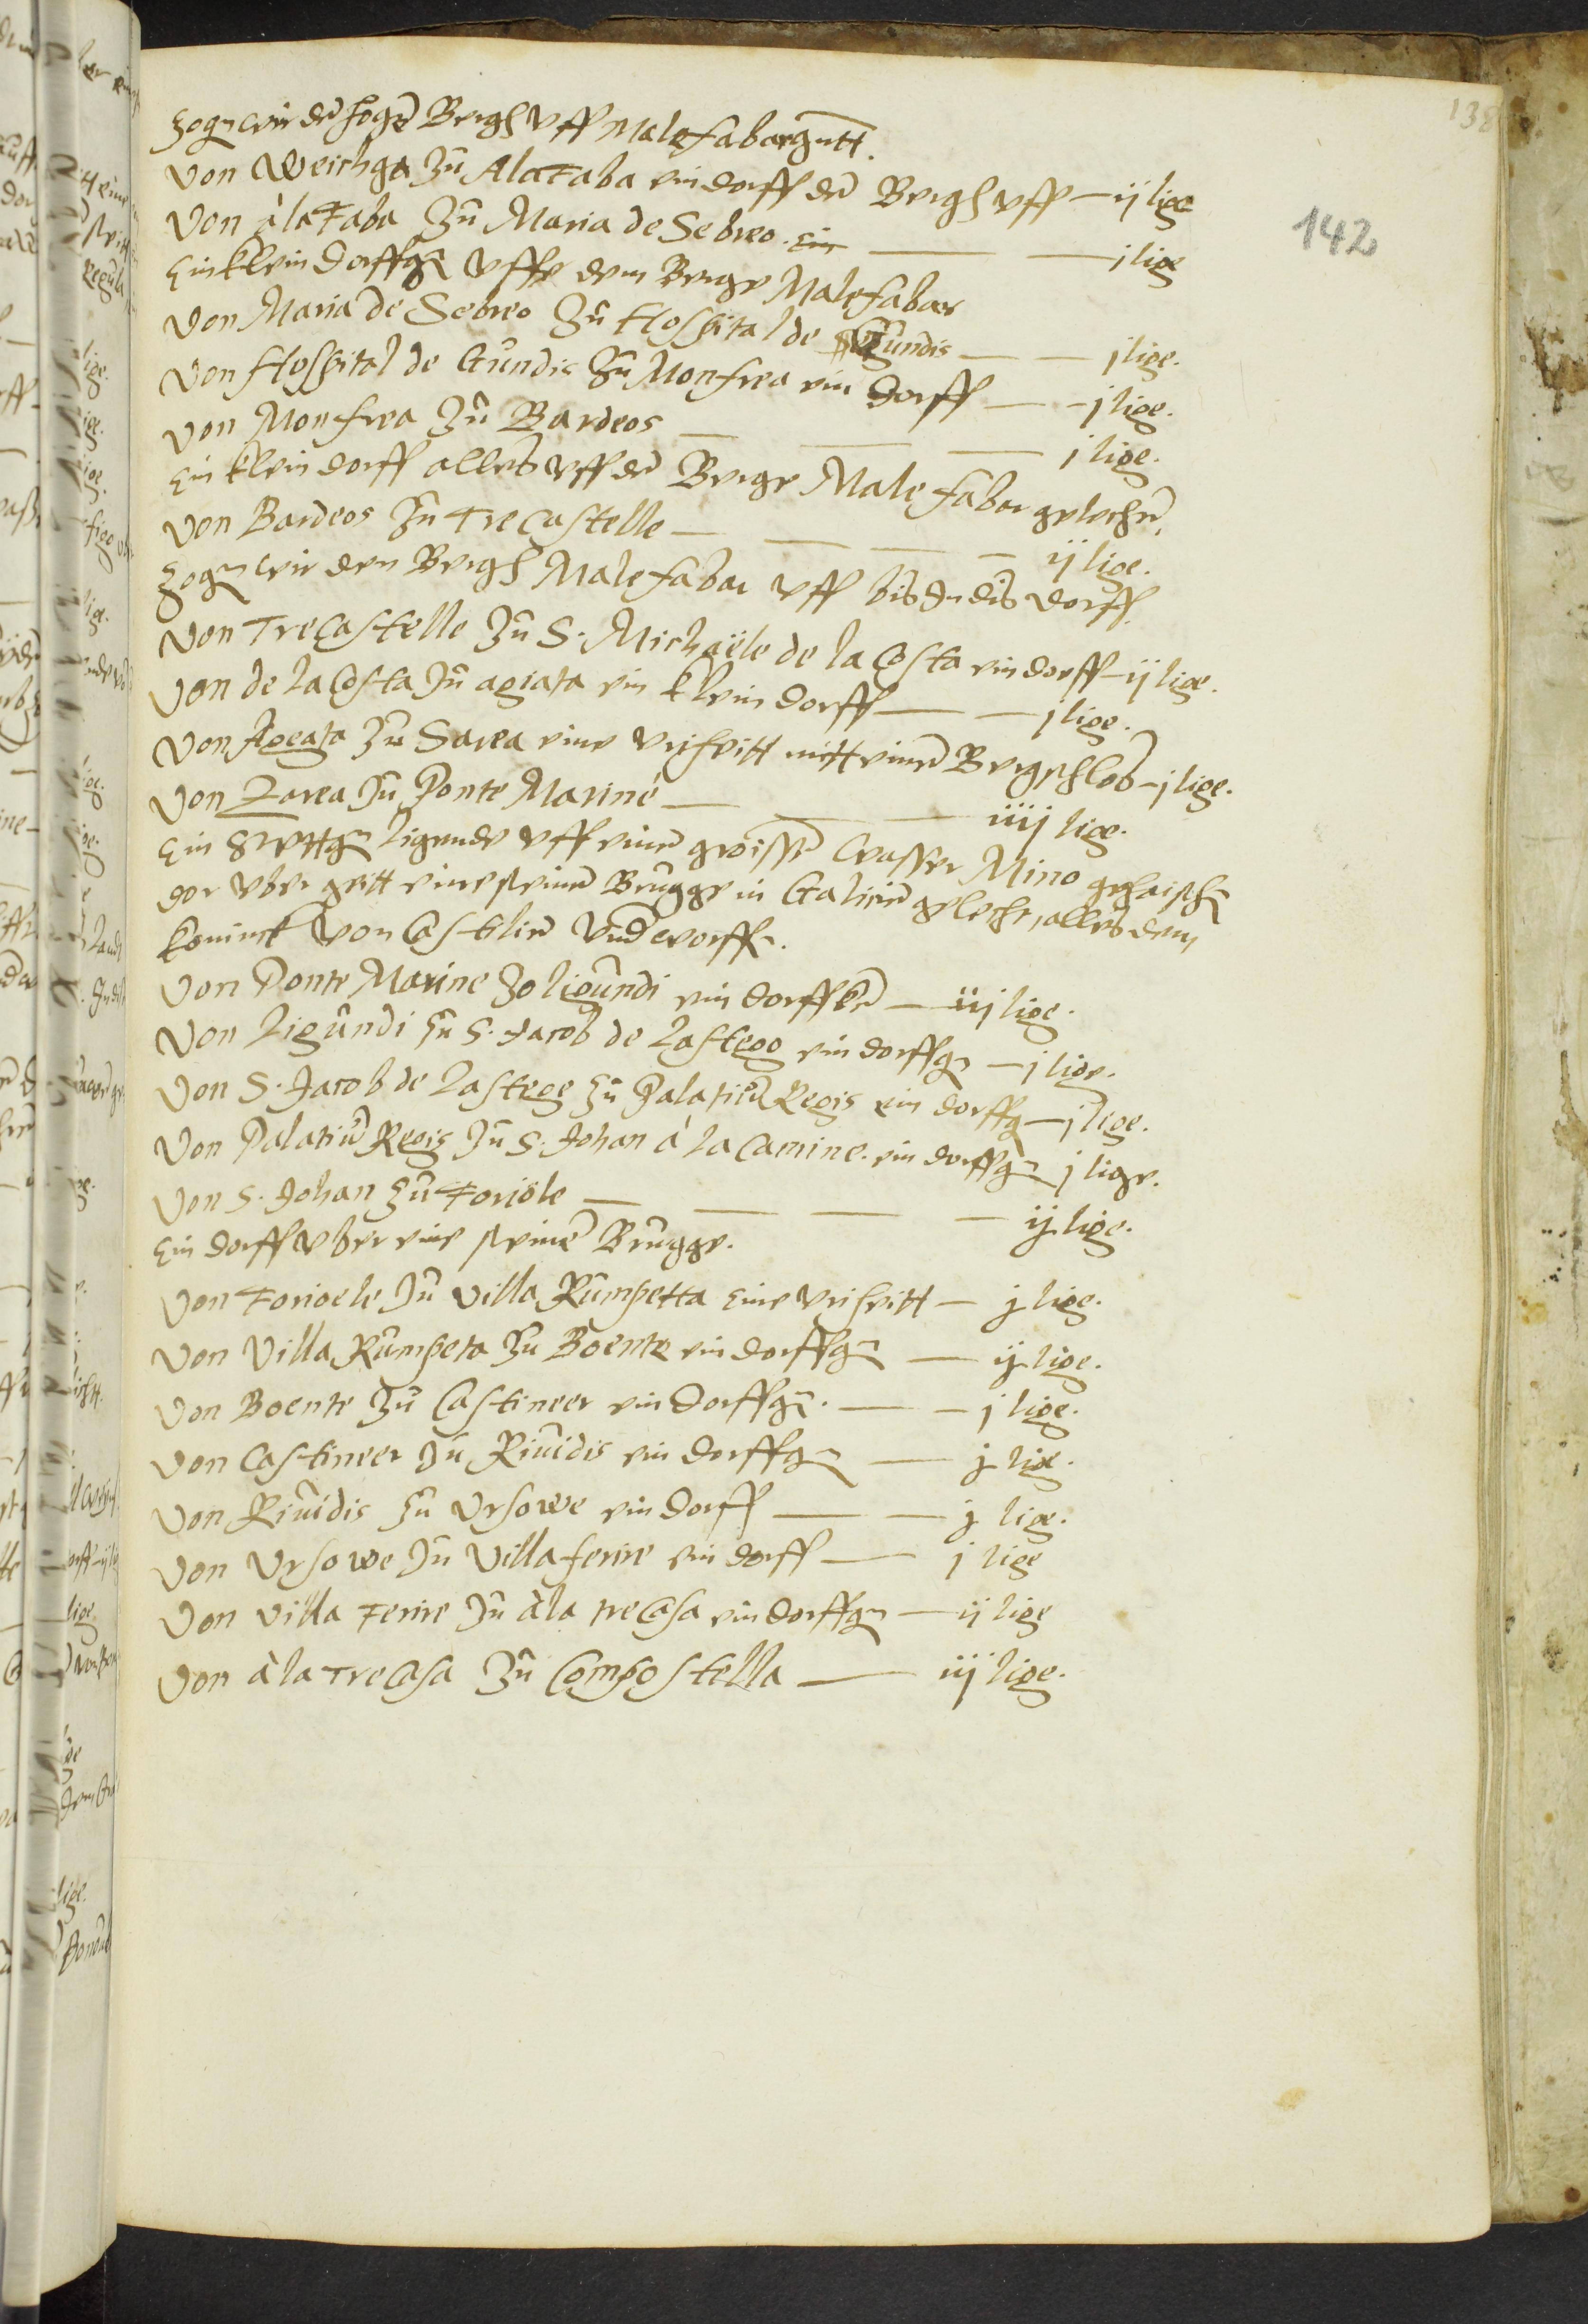 138
142
zogen wir den hogen Bergh vff Malefabar gnett.
Von Weichga zu Ala Faba ein dorff den Bergh vff — ij lige
Von à la Faba zu Maria de Sebreo. Ein — — j lige
Ein klein dorffgen vffe dem Berge Malefabar
Von Maria de Sebreo zu Hospital de Gundis — — j lige.
Von Hospital de Gundis zu Monfrea ein dorff — — j lige.
Von Monfrea zu Bardeos — — — j lige.
Ein klein dorff alles vff den Berge Malefabar gelegen,
Von Bardeos zu Trecastelle — — — — ij lige.
Zogen wir den Bergh Malefabar vff bis In dis dorff.
Von Trecastelle zu S. Michaële de la Costa ein dorff — ij lige.
Von de la Costa zu agiata ein klein dorff — — j lige.
Von Ageata zu Sarea eine vrijheitt mitt einem Bergschlos — j lige.
Von Zarea zu Ponte Mariné — — — iiij lige.
Ein Stettgen ligende vff einem groissen wasser Mino gehaissen
dar vber geitt eine steinen Brugge in Galicien gelegen, alles dem
koninck von Castilien vnderworffen.
Von Ponte Marine zo ligundi ein dorffken — iij lige.
Von Ligundi zu S. Jacob de Lastego ein dorffgen — j lige.
Von S. Jacob de Lastege zu Palatium Regis ein dorffgen — j lige.
Von Palatium Regis zu S. Johan à la Camine. ein dorffgen j lige.
Von S. Johan zu Foriole — — — — ij lige.
Ein dorff vber eine steinen Brugge.
Von Forioele zu Villa Rumpetta eine vrijheitt — j lige.
Von Villa Rumpeta zu Boente ein dorffgen — ij lige.
Von Boente zu Castineer ein dorffgen. — — j lige.
Von Castineer zu Riuidis ein dorffgen — j lige.
Von Riuidis zu Vrsowe ein dorff — — j lige.
Von Vrsowe zu Villaferire ein dorff — j lige
Von Villa Ferire zu à la treCasa ein dorffgen — ij lige
Von à la TreCasa zu Compostella — iij lige.